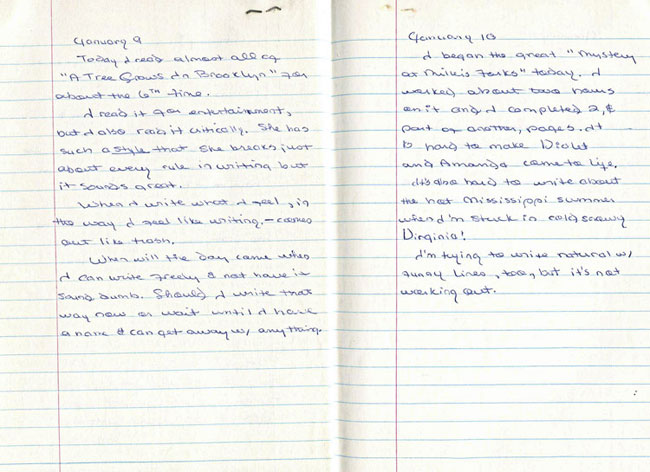 January 9
Today I read almost all of
"A Tree Grows In Brooklyn" for
about the 6th time.
I read it for entertainment,
but I also read it critically. She has
such a style that she breaks just
about every rule in writing but
it sounds great.
When I write what I feel, in
the way I feel like writing - comes
out like trash.
When will the day come when
I can write freely & not have it
sound dumb. Should I write that
way now or wait until I have
a name & can get away w/ anything.
January 10
I began the great "Mystery
at Milkis Forks" today. I
worked about two hours
on it and I completed 2, &
part of another, pages. It
is hard to make Violet
and Amanda come to life.
It's also hard to write about
the hot Mississippi summer
when I'm stuck in cold snowy
Virginia!
I'm trying to write natural w/
funny lines, too, but it's not
working out.